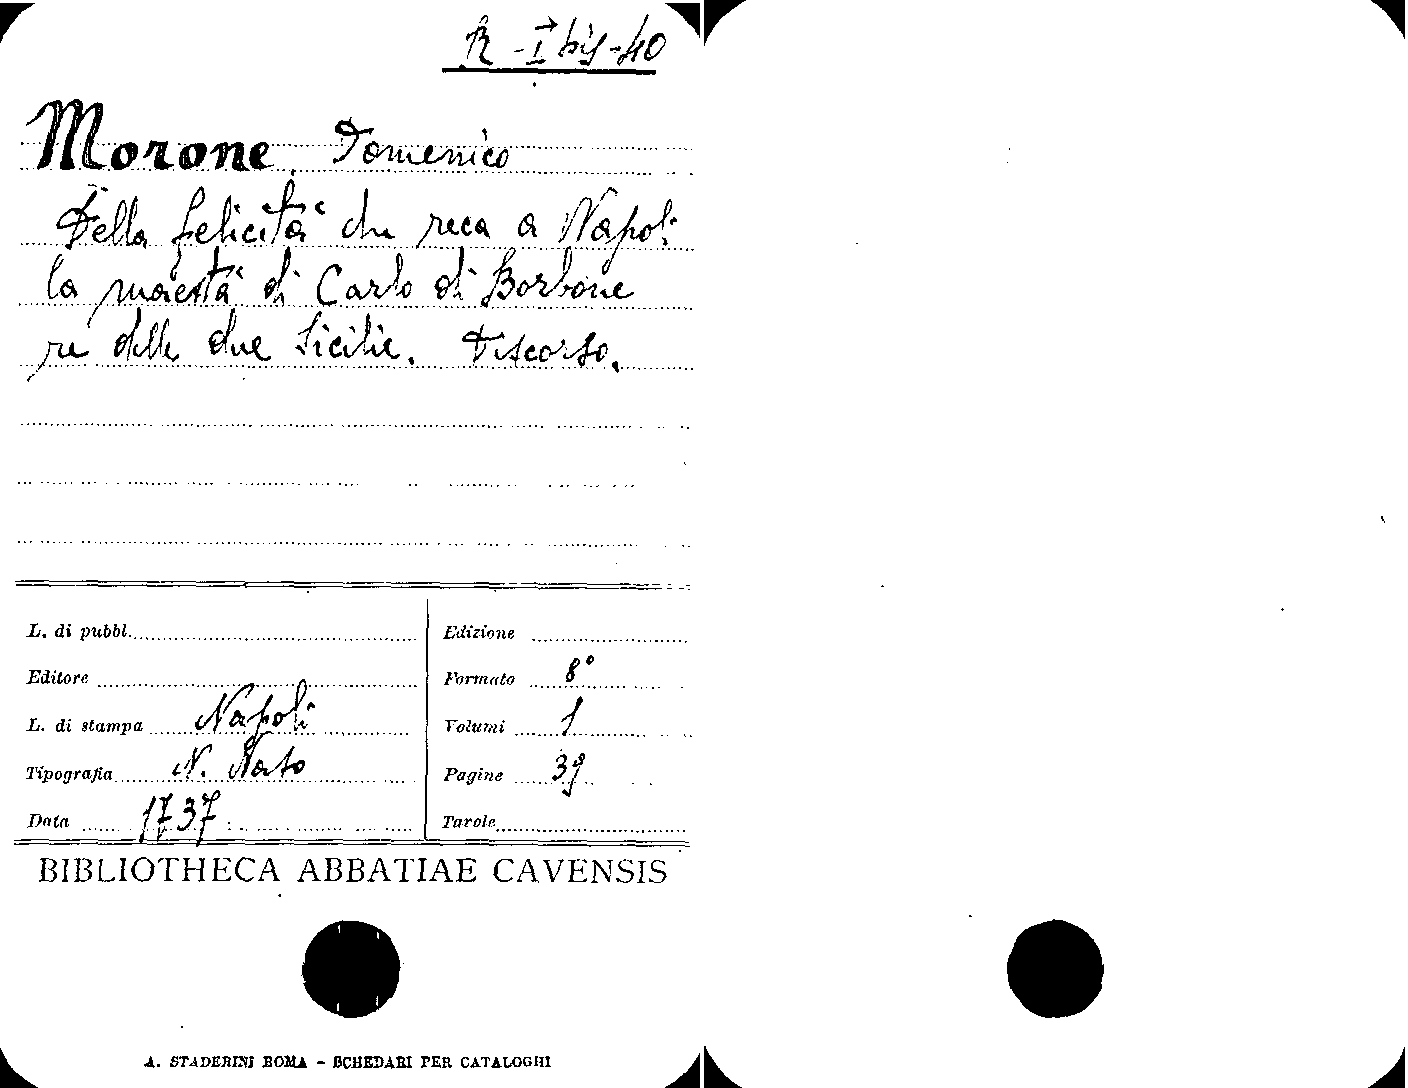 R - I bis - 40
Morone, Domenico
Della felicità che reca a Napoli
la maestà di Carlo di Borbone
re delle due Sicilie. Discorso.
L. di pubbl.
Edizione
Editore
Formato 8°
L. di stampa Napoli
Volumi 1
Tipografia N. Naso
Pagine 39
Data 1737
Tavole
BIBLIOTHECA ABBATIAE CAVENSIS
A. STADERINI ROMA - SCHEDARI PER CATALOGHI